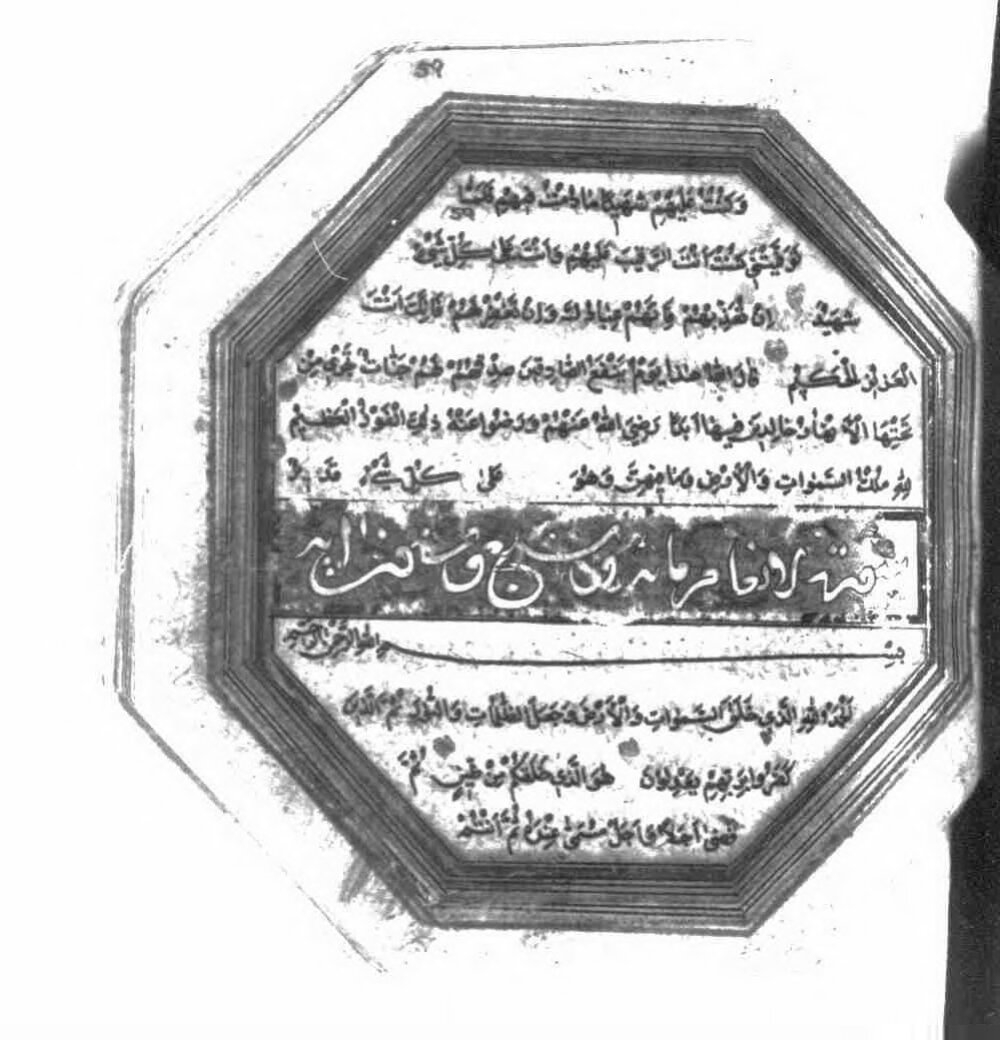 ٥٩
وَكُنْتُ عَلَيْهِمْ شَهِيدًا مَا دُمْتُ فِيهِمْ فَلَمَّا
تَوَفَّيْتَنِي كُنْتَ أَنْتَ الرَّقِيبَ عَلَيْهِمْ وَأَنْتَ عَلَى كُلِّ شَيْءٍ
شَهِيدٌ إِنْ تُعَذِّبْهُمْ فَإِنَّهُمْ عِبَادُكَ وَإِنْ تَغْفِرْ لَهُمْ فَإِنَّكَ أَنْتَ
الْعَزِيزُ الْحَكِيمُ قَالَ اللهُ هَذَا يَوْمُ يَنْفَعُ الصَّادِقِينَ صِدْقُهُمْ لَهُمْ جَنَّاتٌ تَجْرِي مِنْ
تَحْتِهَا الْأَنْهَارُ خَالِدِينَ فِيهَا أَبَدًا رَضِيَ اللهُ عَنْهُمْ وَرَضُوا عَنْهُ ذَلِكَ الْفَوْزُ الْعَظِيمُ
لِلهِ مُلْكُ السَّمَوَاتِ وَالْأَرْضِ وَمَا فِيهِنَّ وَهُوَ عَلَى كُلِّ شَيْءٍ قَدِيرٌ
سورة الانعام مائة وستون آية
بِسْمِ اللهِ الرَّحْمَنِ الرَّحِيمِ
الْحَمْدُ لِلهِ الَّذِي خَلَقَ السَّمَوَاتِ وَالْأَرْضَ وَجَعَلَ الظُّلُمَاتِ وَالنُّورَ ثُمَّ الَّذِينَ
كَفَرُوا بِرَبِّهِمْ يَعْدِلُونَ هُوَ الَّذِي خَلَقَكُمْ مِنْ طِينٍ ثُمَّ
قَضَى أَجَلًا وَأَجَلٌ مُسَمًّى عِنْدَهُ ثُمَّ أَنْتُمْ